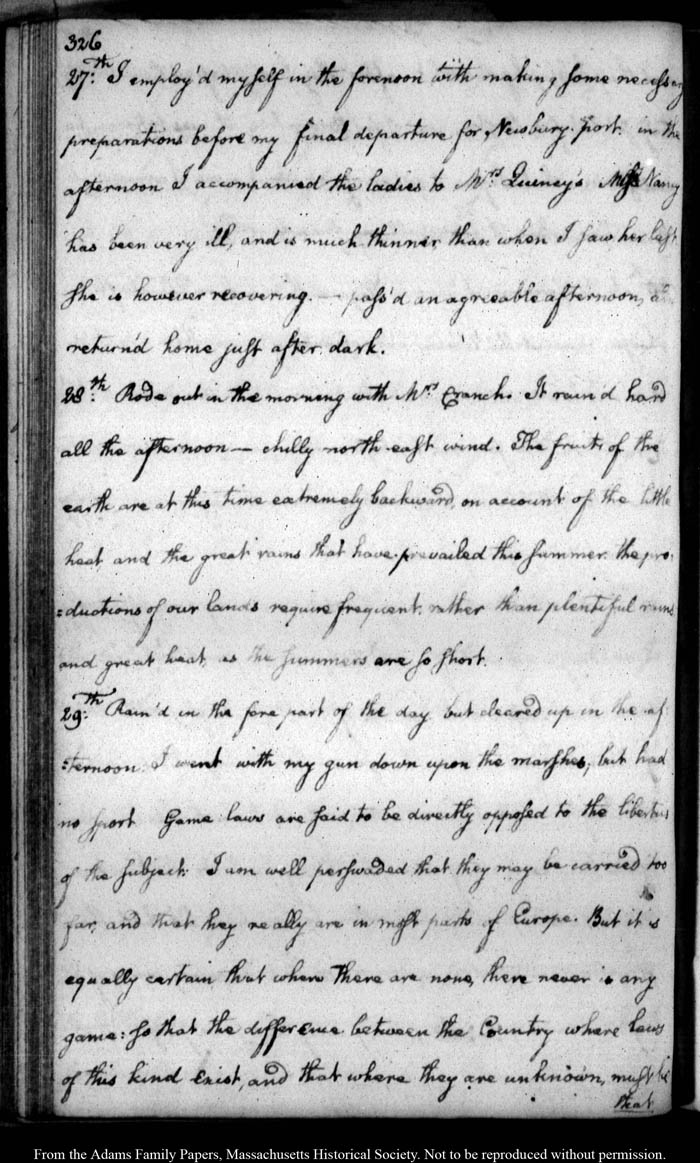 326
27.th I employ'd myself in the forenoon with making some necessary
preparations before my final departure for Newbury-port. in the
afternoon I accompanied the ladies to Mrs Quincy's Miss Nancy
has been very ill, and is much thinner than when I saw her last
She is however recovering. — pass'd an agreeable afternoon, and
return'd home just after dark.
28.th Rode out in the morning with Mrs Cranch. It rain'd hard
all the afternoon — chilly north-east wind. The fruits of the
earth are at this time extremely backward, on account of the little
heat and the great rains that have prevailed this summer. the pro-
=ductions of our lands require frequent, rather than plentiful rains
and great heat, as the summers are so short.
29.th Rain'd in the fore part of the day but cleared up in the af-
=ternoon. I went with my gun down upon the marshes; but had
no sport Game laws are said to be directly opposed to the liberties
of the subject: I am well perswaded that they may be carried too
far, and that they really are in most parts of Europe. But it is
equally certain that where there are none, there never is any
game: so that the difference between the Country where laws
of this kind exist, and that where they are unknown, must be
that
From the Adams Family Papers, Massachusetts Historical Society. Not to be reproduced without permission.